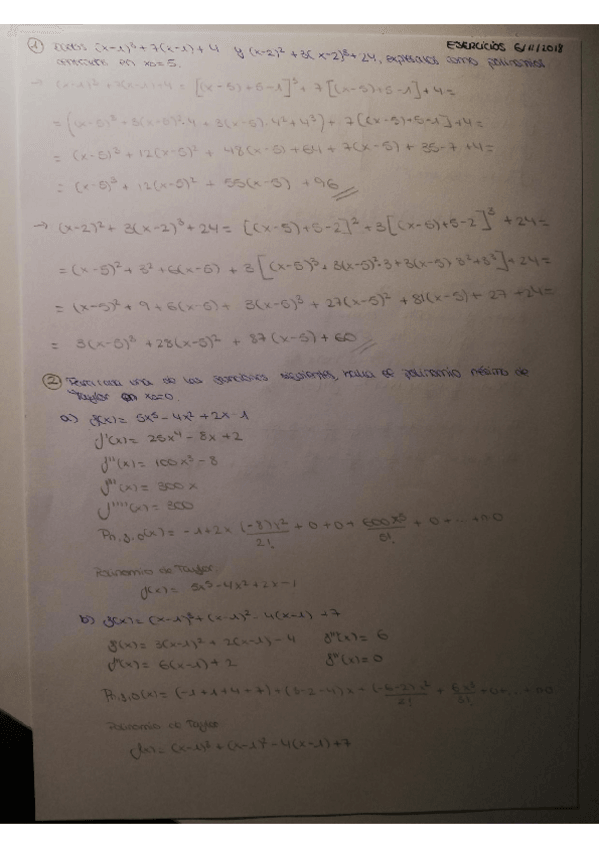 EJERCICIOS 6/11/2018
① Dados (x-1)³+7(x-1)+4 y (x-2)²+3(x-2)³+24, expresarlos como polinomios
centrados en x₀=5.
→ (x-1)³+7(x-1)+4 = [(x-5)+5-1]³ + 7[(x-5)+5-1]+4=
= [(x-5)³+3(x-5)²·4+3(x-5)·4²+4³]+ 7[(x-5)+5-1]+4=
= (x-5)³+12(x-5)² + 48(x-5)+64+7(x-5) + 35-7+4=
= (x-5)³+12(x-5)² + 55(x-5) +96
→ (x-2)²+3(x-2)³+24= [(x-5)+5-2]²+3[(x-5)+5-2]³ +24=
=(x-5)²+3²+6(x-5) + 3[(x-5)³+3(x-5)²·3+3(x-5)·3²+3³]+24=
= (x-5)²+9+6(x-5)+ 3(x-5)³+27(x-5)² +81(x-5)+27+24=
= 3(x-5)³+28(x-5)² +87(x-5)+60
② Para cada una de las funciones siguientes, halla el polinomio de
Taylor en x₀=0.
a) f(x)= 5x⁵-4x²+2x-1
f'(x)= 25x⁴-8x+2
f''(x)= 100x³-8
f'''(x)= 300x
f''''(x)= 300
Pn,f,0(x)= -1+2x (-8)x²/2! +0+0+ 600x⁵/5! +0+...+n·0
Polinomio de Taylor
f(x)= 5x⁵-4x²+2x-1
b) f(x)=(x-1)³+(x-1)²-4(x-1)+7
f'(x)=3(x-1)²+2(x-1)-4 f'''(x)= 6
f''(x)=6(x-1)+2 f''''(x)=0
Pn,f,0(x)= (-1+1+4+7)+(3-2-4)x-(-6-2)x²/2! + 6x³/3! +0+...+n·0
Polinomio de Taylor
f(x)=(x-1)³+(x-1)²-4(x-1)+7